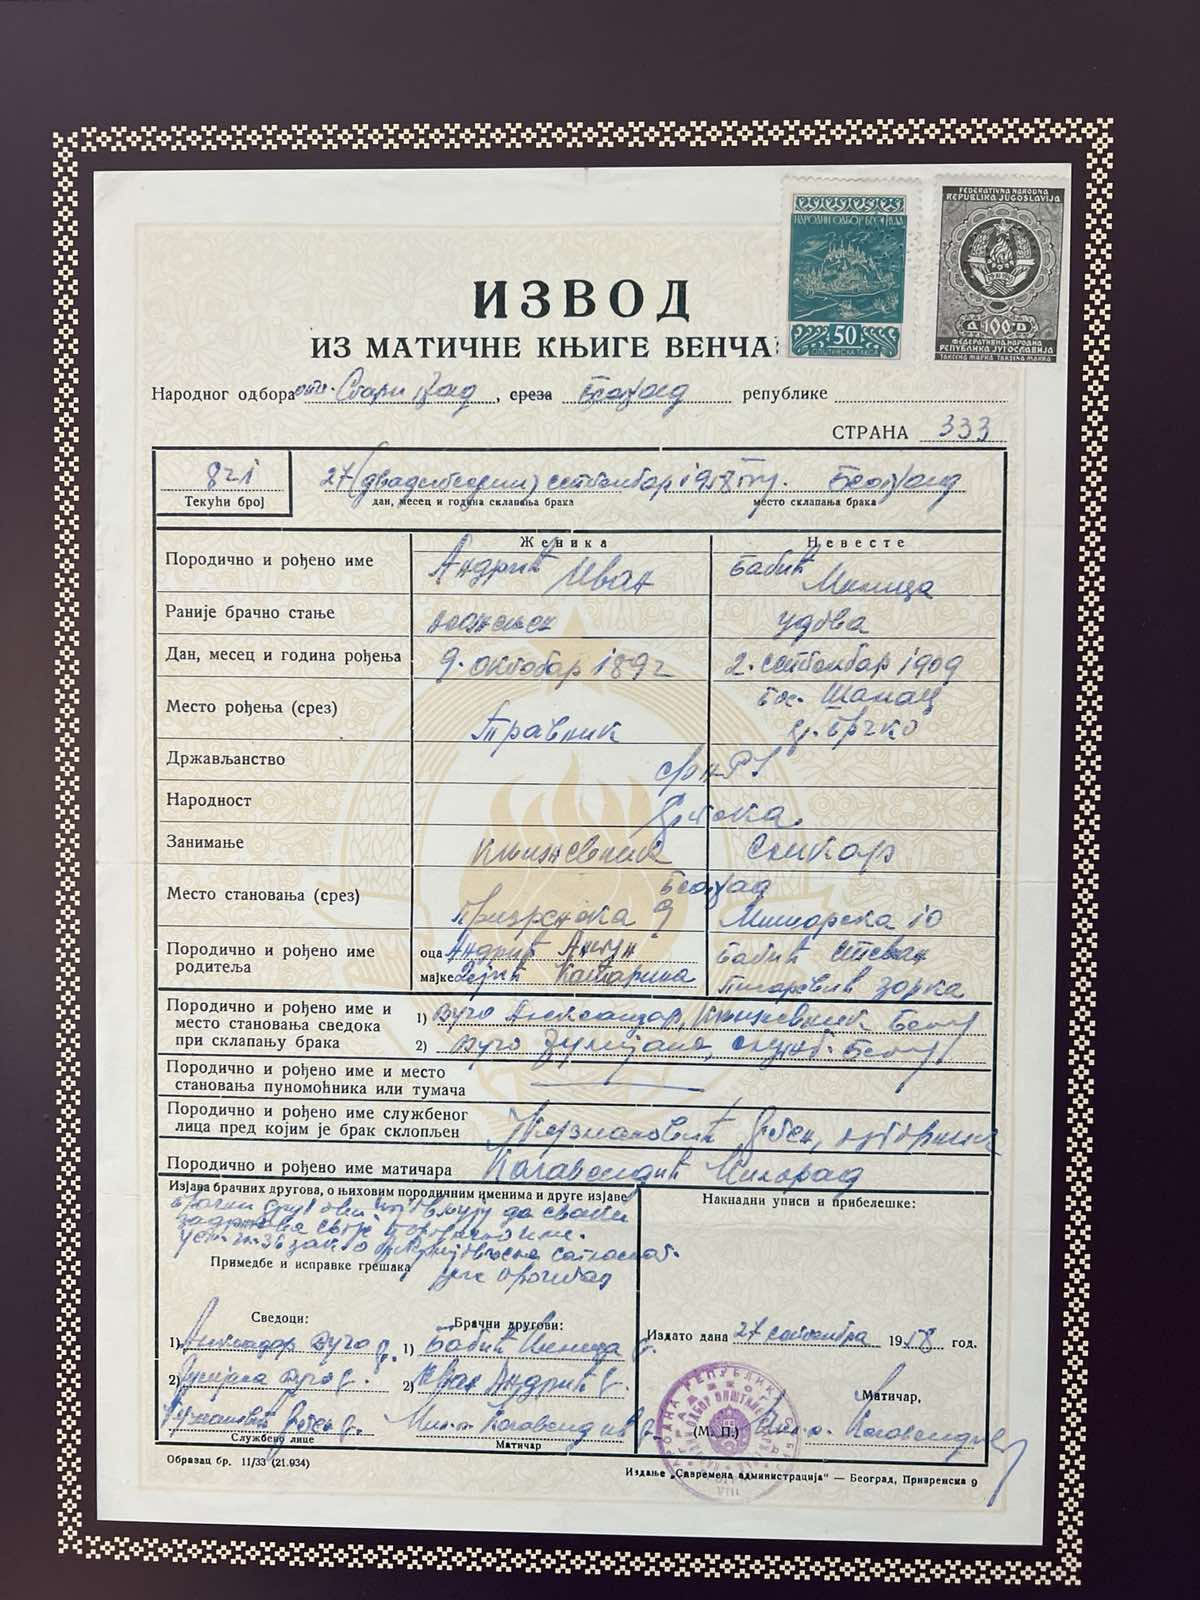 НАРОДНИ ОДБОР БЕОГРАДА
50
ОПШТИНСКА ТАКСА
FEDERATIVNA NARODNA
REPUBLIKA JUGOSLAVIJA
Д 100 D
ФЕДЕРАТИВНА НАРОДНА
РЕПУБЛИКА ЈУГОСЛАВИЈА
ТАКСЕНА МАРКА TAKSENA MARKA
ИЗВОД
ИЗ МАТИЧНЕ КЊИГЕ ВЕНЧА
Народног одбора опш. Стари град, среза Београд републике
СТРАНА 333
821 27 (двадесетседми) септембар 1958 Београд
Текући број дан, месец и година склапања брака место склапања брака
Женика Невесте
Породично и рођено име Андрић Иван Бабић Милица
Раније брачно стање нежењен удова
Дан, месец и година рођења 9. октобар 1892 2. септембар 1909
Место рођења (срез) Травник Бос. Шамац Брчко
Држављанство ФНРЈ
Народност Српска
Занимање књижевник сликар
Место становања (срез) Београд
Призренска 9 Мишарска 10
Породично и рођено име родитеља оца Андрић Антун Бабић Стеван
мајке Катарина Зорка
Породично и рођено име и место становања сведока при склапању брака
1) Вучо Александар, књижевник Београд
2) Вучо Лулијана, служб. Београд
Породично и рођено име и место становања пуномоћника или тумача
Породично и рођено име службеног лица пред којим је брак склопљен одборник
Породично и рођено име матичара Милорад
Изјава брачних другова, о њиховим породичним именима и друге изјаве
Брачни другови изјављују да сваки
задржава своје породично име.
Примедбе и исправке грешака
Накнадни уписи и прибелешке:
Сведоци: Брачни другови:
1) Александар Вучо 1) Бабић Милица
2) Лулијана Вучо 2) Иван Андрић
Службено лице Матичар
Издато дана 27 септембра 1958 год.
Матичар,
(М. П.)
Образац бр. 11/33 (21.934)
Издање „Савремена администрација“ — Београд, Призренска 9